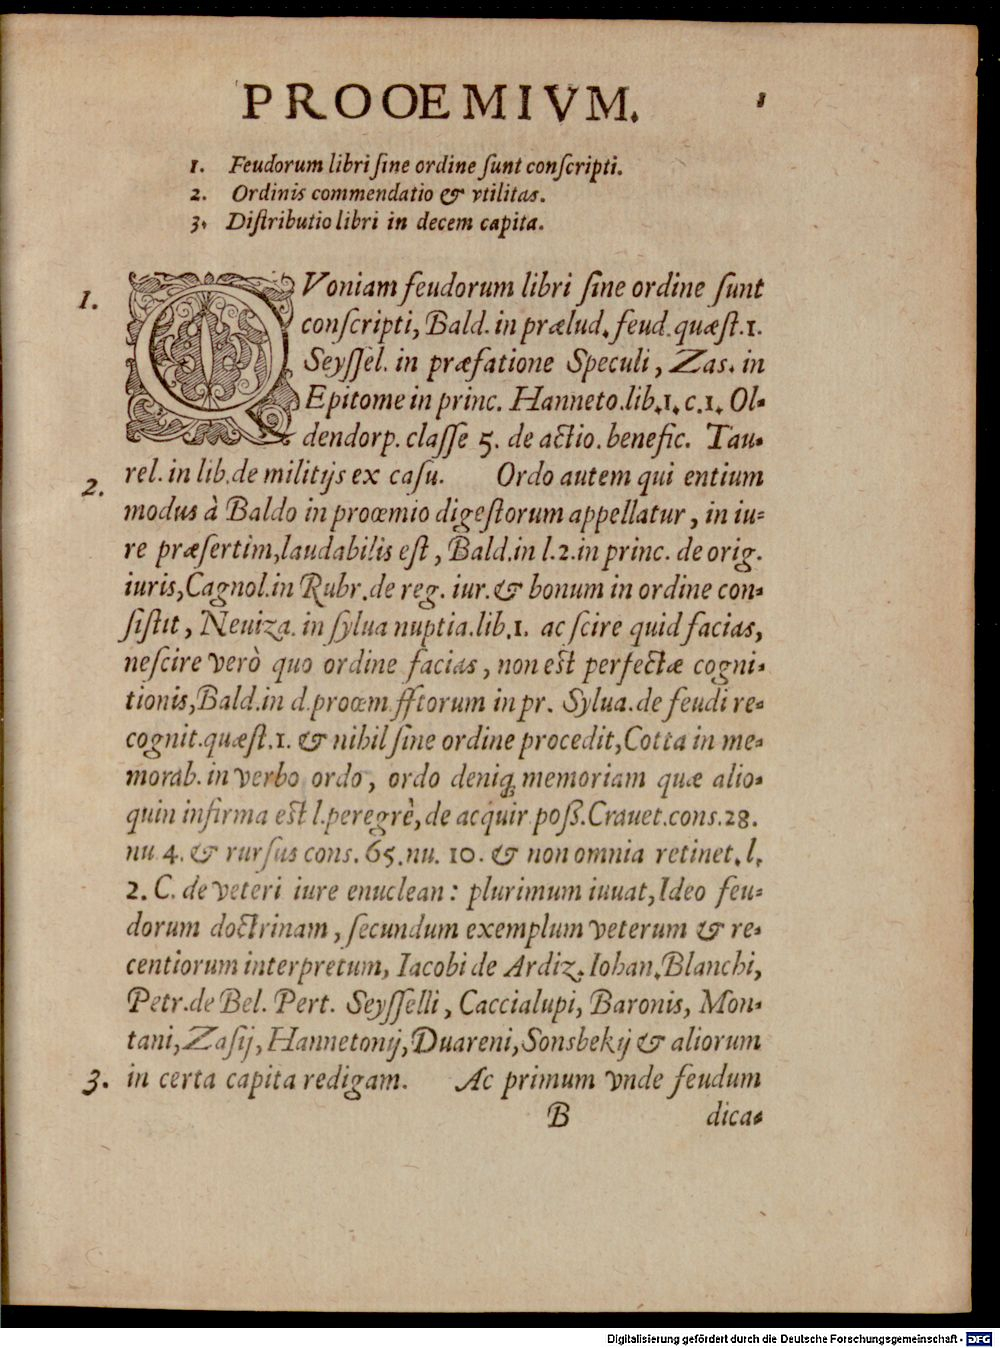 PROOEMIVM. 1
1. Feudorum libri ſine ordine ſunt conſcripti.
2. Ordinis commendatio & vtilitas.
3. Diſtributio libri in decem capita.
1. QVoniam feudorum libri ſine ordine ſunt
conſcripti, Bald. in prælud. feud. quæſt. 1.
Seyſſel. in præfatione Speculi, Zas. in
Epitome in princ. Hanneto. lib. 1. c. 1. Ol-
dendorp. claſſe 5. de actio. benefic. Tau-
2. rel. in lib. de militijs ex caſu. Ordo autem qui entium
modus à Baldo in proœmio digeſtorum appellatur, in iu-
re præſertim, laudabilis eſt, Bald. in l. 2. in princ. de orig.
iuris, Cagnol. in Rubr. de reg. iur. & bonum in ordine con-
ſiſtit, Neuiza. in ſylua nuptia. lib. 1. ac ſcire quid facias,
neſcire verò quo ordine facias, non eſt perfectæ cogni-
tionis, Bald. in d. proœm. fftorum in pr. Sylua. de feudi re-
cognit. quæſt. 1. & nihil ſine ordine procedit, Cotta in me-
morab. in verbo ordo, ordo deniq; memoriam quæ alio-
quin infirma eſt l. peregrè, de acquir poſſ. Crauet. cons. 28.
nu 4. & rurſus cons. 65. nu. 10. & non omnia retinet. l.
2. C. de veteri iure enuclean: plurimum iuuat, Ideo feu-
dorum doctrinam, ſecundum exemplum veterum & re-
centiorum interpretum, Iacobi de Ardiz. Iohan. Blanchi,
Petr. de Bel. Pert. Seyſſelli, Caccialupi, Baronis, Mon-
tani, Zaſij, Hannetonij, Duareni, Sonsbekij & aliorum
3. in certa capita redigam. Ac primum vnde feudum
B dica-
Digitalisierung gefördert durch die Deutsche Forschungsgemeinschaft - DFG